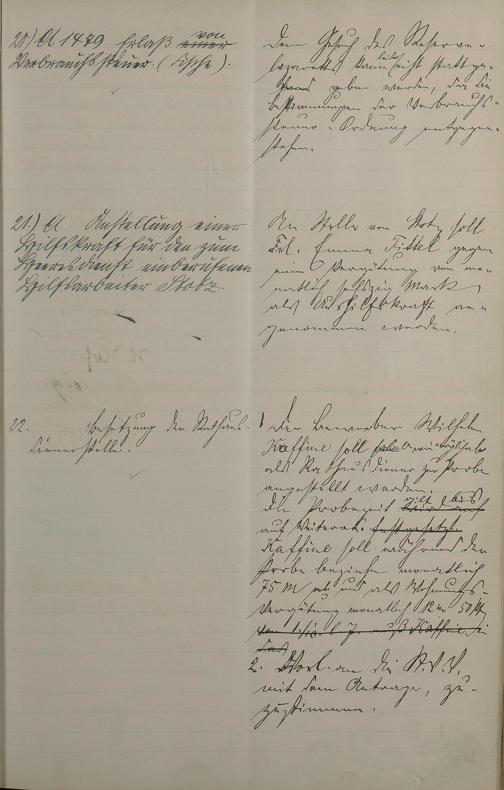 20.) A 1479. Erlaß von
einer
Verbrauchssteuer. (Küche).
Dem Gesuch des Reserve-
lazaretts kann nicht stattge-
geben werden, da die
Bestimmungen der Verbrauchs-
steuer-Ordnung entgegen-
stehen.
21.) A Anstellung einer
Hilfskraft für den zum
Heeresdienst einberufenen
Hilfsarbeiter Stotz.
An Stelle von Stotz soll
Frl. Emma Tittel gegen
eine Vergütung von mo-
natlich sechzig Mark
als Aushilfskraft an-
genommen werden.
22. Besetzung der Rathaus-
dienerstelle.
1 Der Bewerber Wilhelm
Kaffine soll
als Rathausdiener zur Probe
angestellt werden.
Die Probezeit gilt bis
wird auf
auf Weiteres. festgesetzt
Kaffine soll während der
Probe beziehen monatlich
75 M und als Wohnungs-
vergütung monatlich 12 M 50 Pf.
muß Kaffine
2. Vorl. an die St.V.V.
mit dem Antrage, zu-
zustimmen.